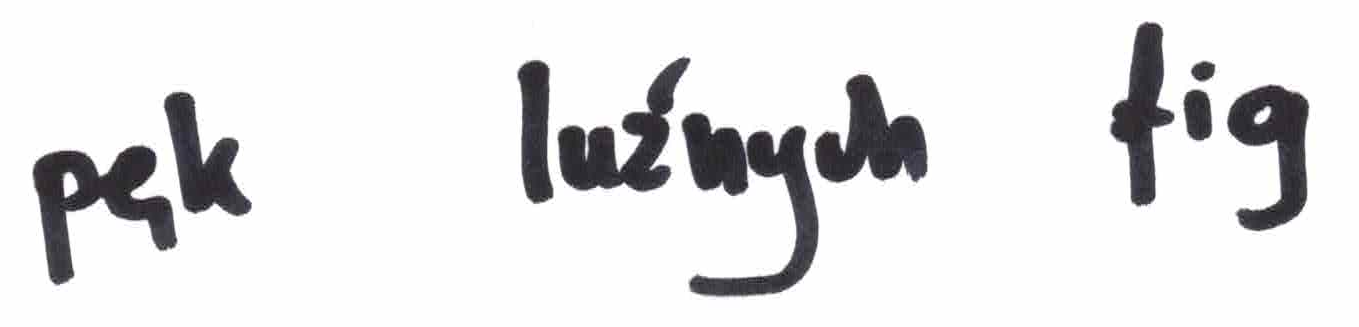 pęk luźnych fig